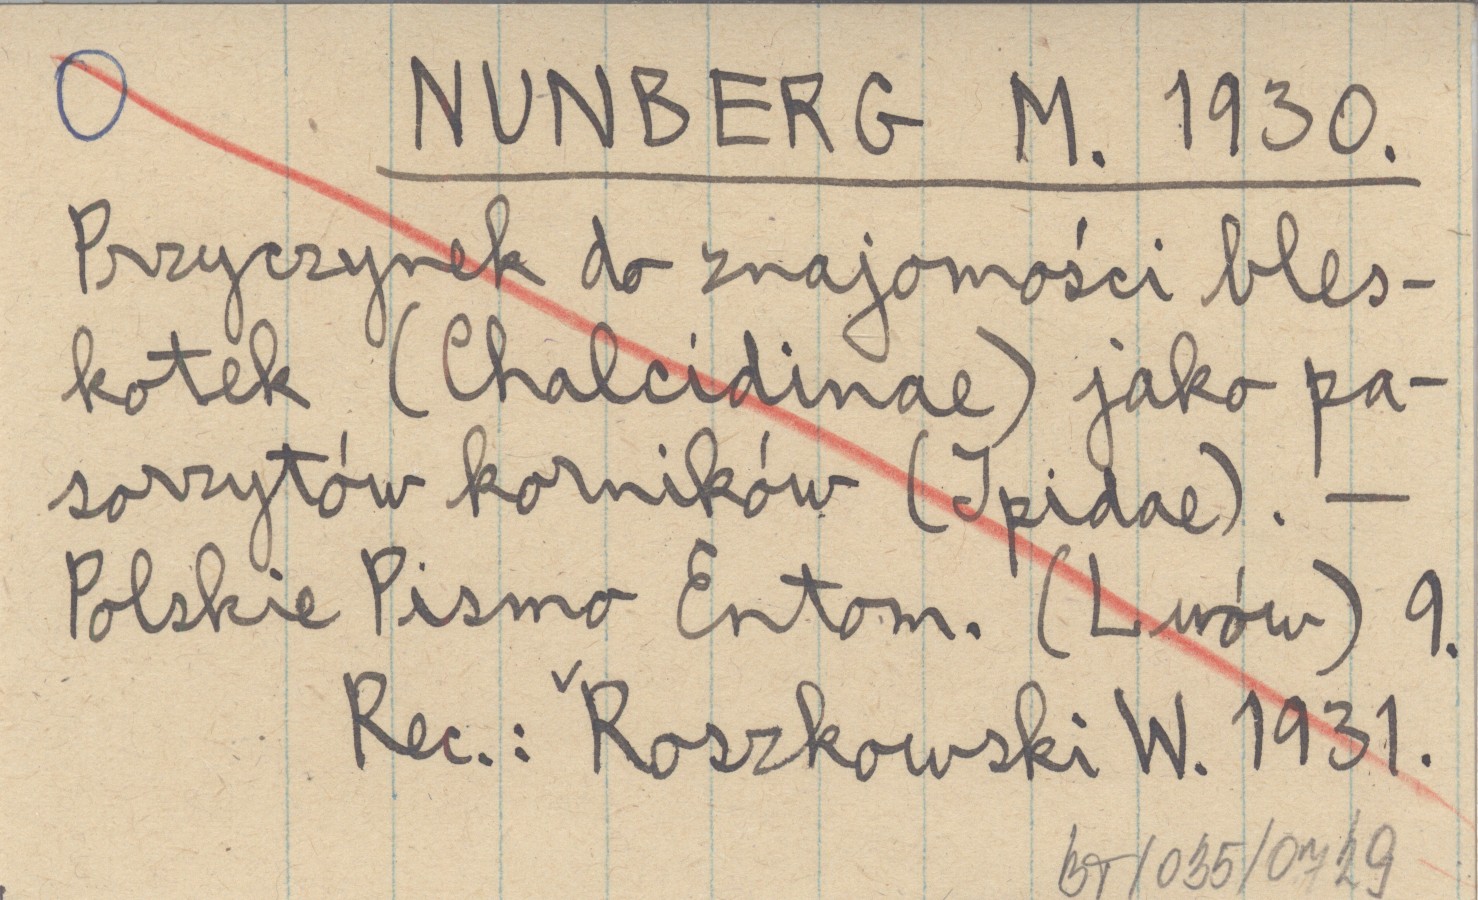 O NUNBERG M. 1930.
Przyczynek do znajomości bles-
kotek (Chalcidinae) jako pa-
sorzytów korników (Ipidae). —
Polskie Pismo Entom. (Lwów) 9.
Rec.: ˅Roszkowski W. 1931.
BT/035/0729